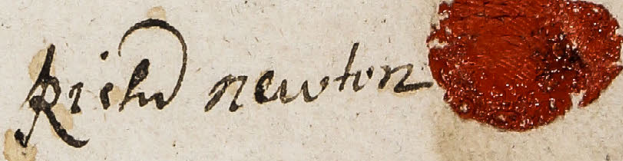 Richd newton